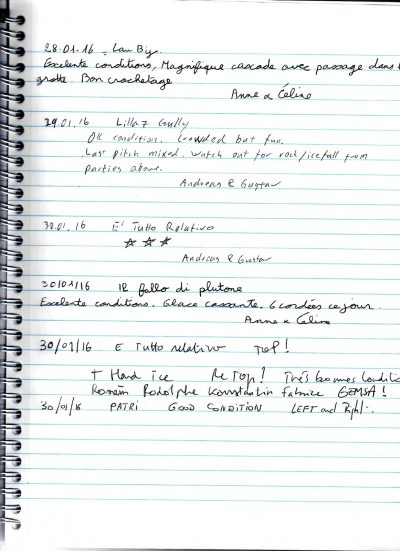 28.01.16 - Lau Bij.
Excelente conditions, Magnifique cascade avec passage dans l
grotte. Bon crochetage
Anne & Céline
29.01.16 Lillaz Gully
OK condition. Crowded but fun.
Last pitch mixed. Watch out for rock/ice/fall from
parties above.
Andreas & Gustav
30.01.16 E' Tutto Relativo
☆ ☆ ☆
Andreas & Gustav
30/01/16 Il fallo di plutone
Excelente conditions. Glace cassante. 6 cordées ce jour.
Anne & Céline
30/01/16 E Tutto relativo TOP!
+ Hard ice Re TOP! Très bonnes conditio
Romain Rodolphe Konstantin Fabrice GEMSA!
30/01/16 PATRI GOOD CONDITION LEFT and Right.